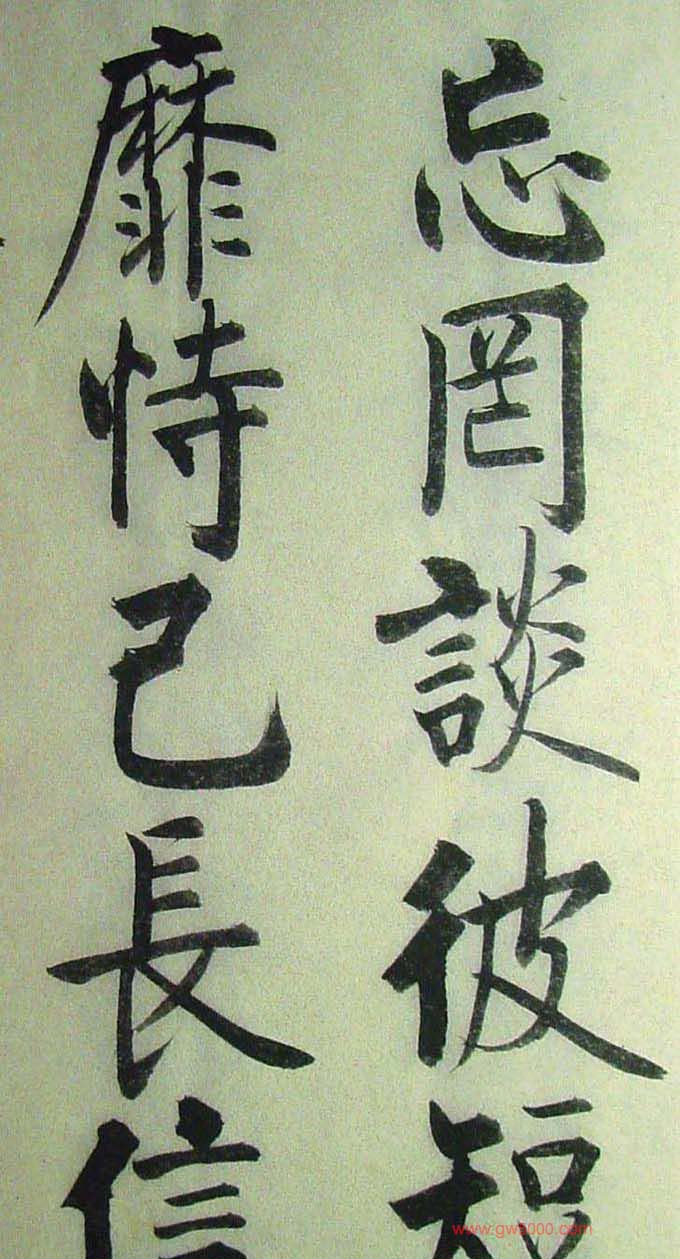 忘罔談彼短
靡恃己長信
www.gw8000.com